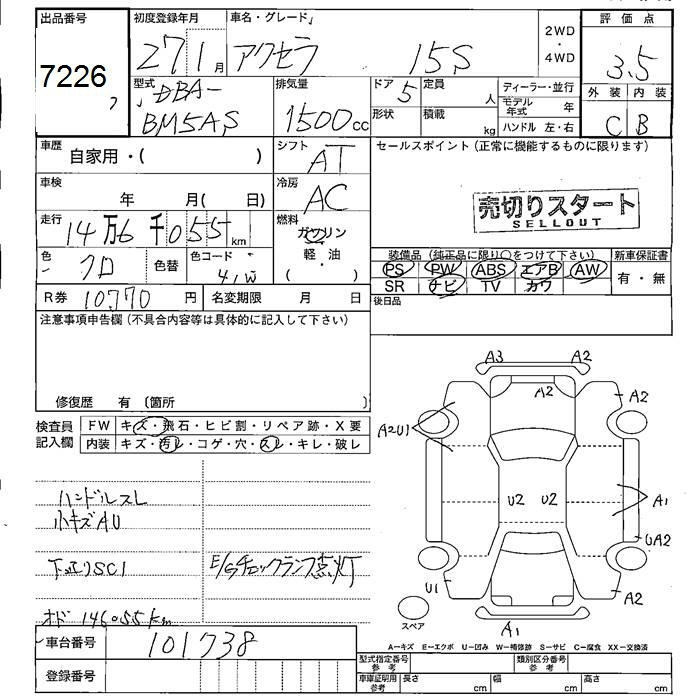 出品番号 初度登録年月 車名・グレード 2WD・4WD 評価点
7226 27 1月 アクセラ 15S 3.5
型式 DBA-BM5AS 排気量 1500cc ドア 5 定員 人 ディーラー・並行 外装 内装
形状 積載 kg モデル年式 年 ハンドル 左・右 C B
車歴 自家用・( ) シフト AT セールスポイント(正常に機能するものに限ります)
車検 年 月( 日) 冷房 AC 売切りスタート
SELLOUT
走行 14万6千055km 燃料 ガソリン
軽・油
( )
色 クロ 色替 色コード 41W 装備品(純正品に限り○をつけて下さい) 新車保証書
PS PW ABS エアB AW 有・無
SR ナビ TV カワ
R券 10770円 名変期限 月 日 後日品
注意事項申告欄(不具合内容等は具体的に記入して下さい)
修復歴 有(箇所 )
検査員記入欄 FW キズ・飛石・ヒビ割・リペア跡・X要
内装 キズ・汚レ・コゲ・穴・スレ・キレ・破レ
ハンドルスレ
小キズAU
下回リSC1 E/Gチェックランプ点灯
オド 146055km
車台番号 101738
登録番号
A3 A2
A2 A2
A2U1
U2 U2 A1
UA2
U1 A2
スペア A1
A-キズ E-エクボ U-凹み W-補修跡 S-サビ C-腐食 XX-交換済
型式指定番号 参考 類別区分番号 参考
車車証明用 参考 長さ cm 幅 cm 高さ cm